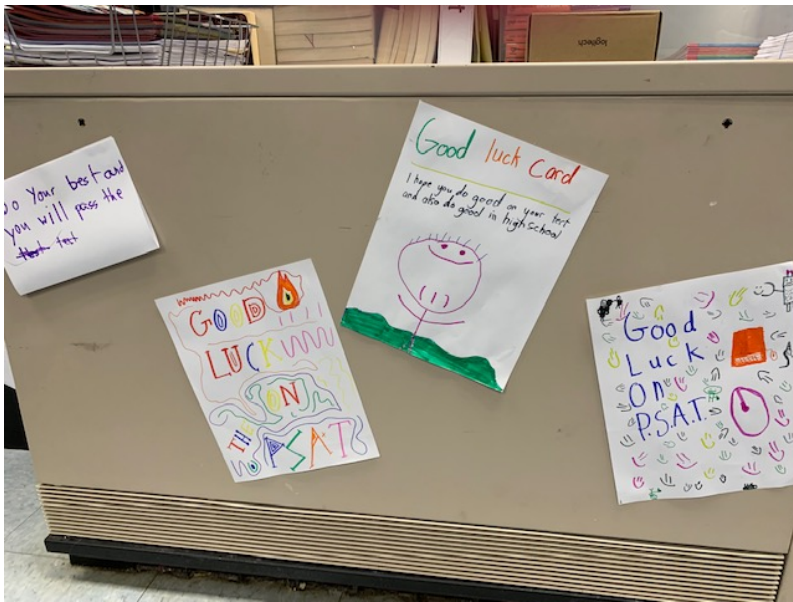 logitech
Do Your best and
you will pass the
test
Good luck Card
I hope you do good on your test
and also do good in high school
GOOD
LUCK
ON
THE
PSAT
Good
Luck
On
P.S.A.T.